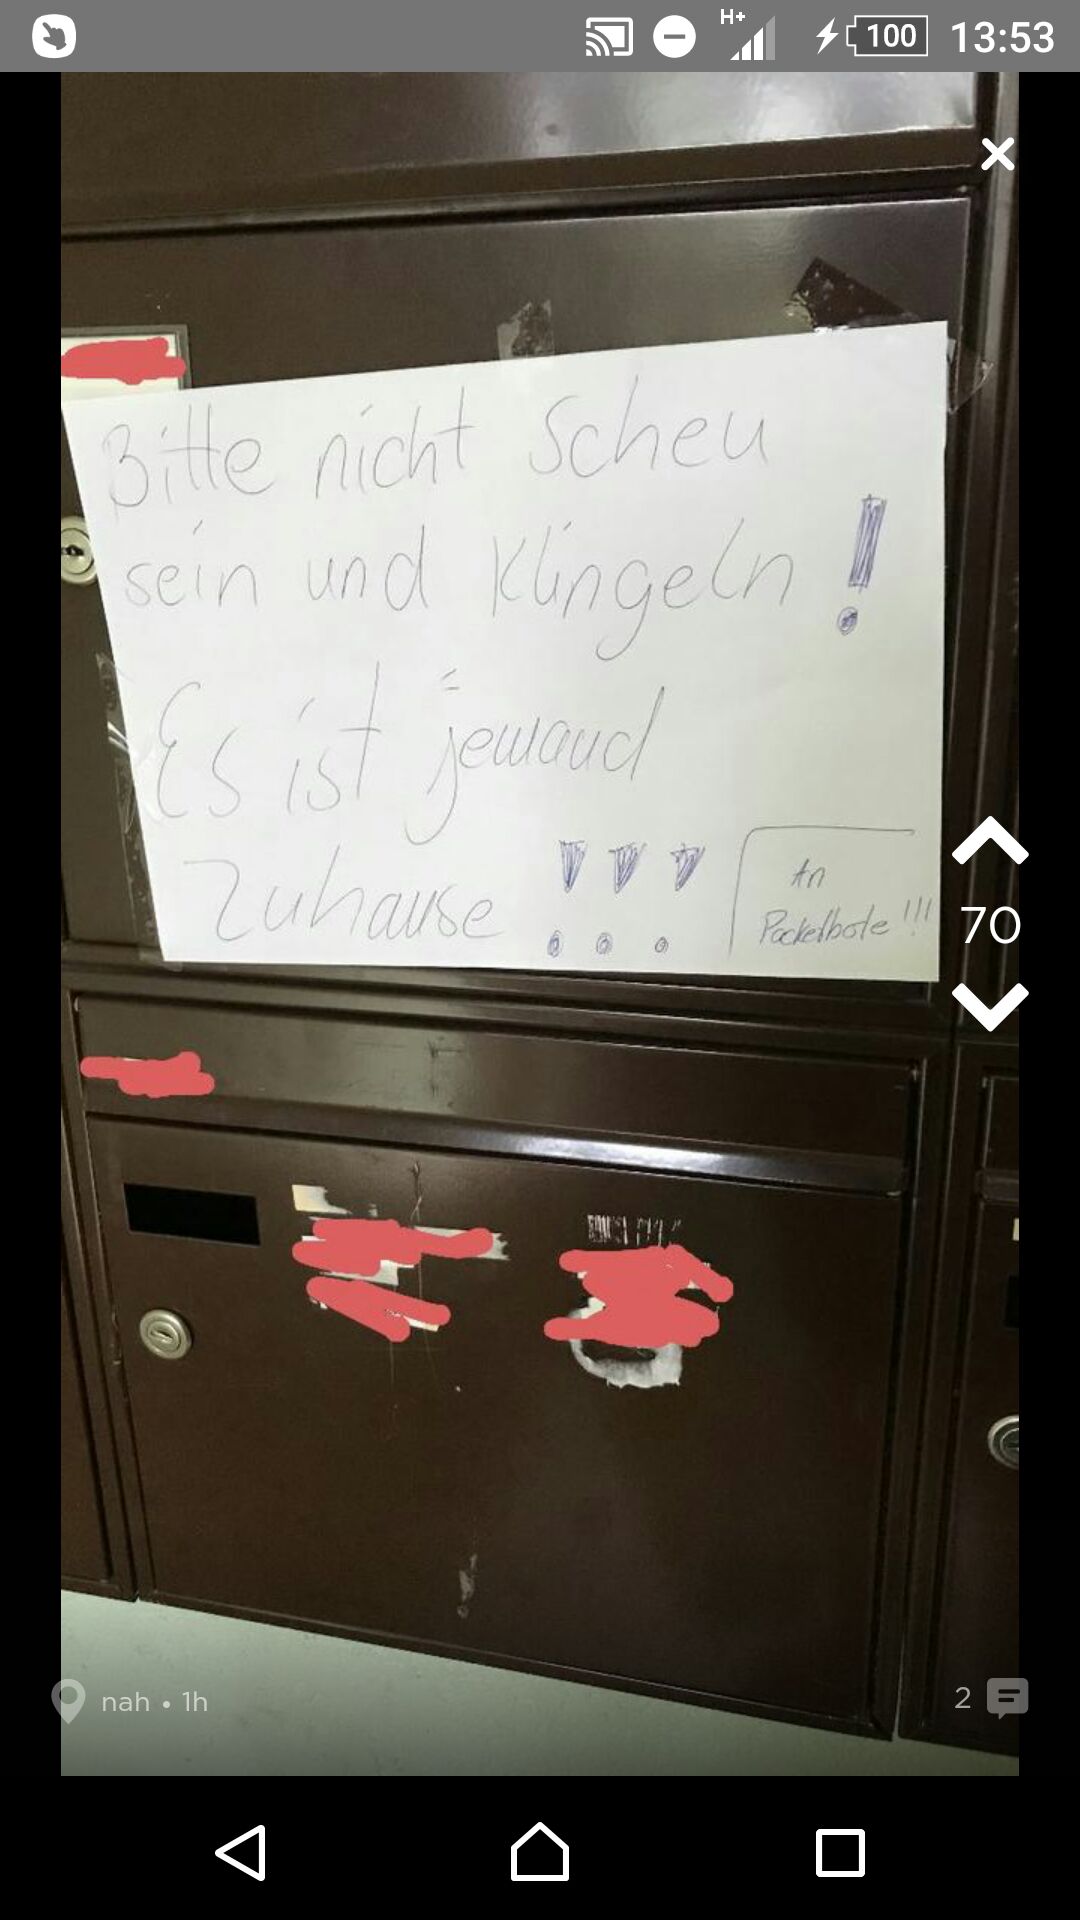 H+
100
13:53
Bitte nicht Scheu
sein und Klingeln !
Es ist jemand
Zuhause !!!
An
Packetbote !!!
70
nah • 1h
2